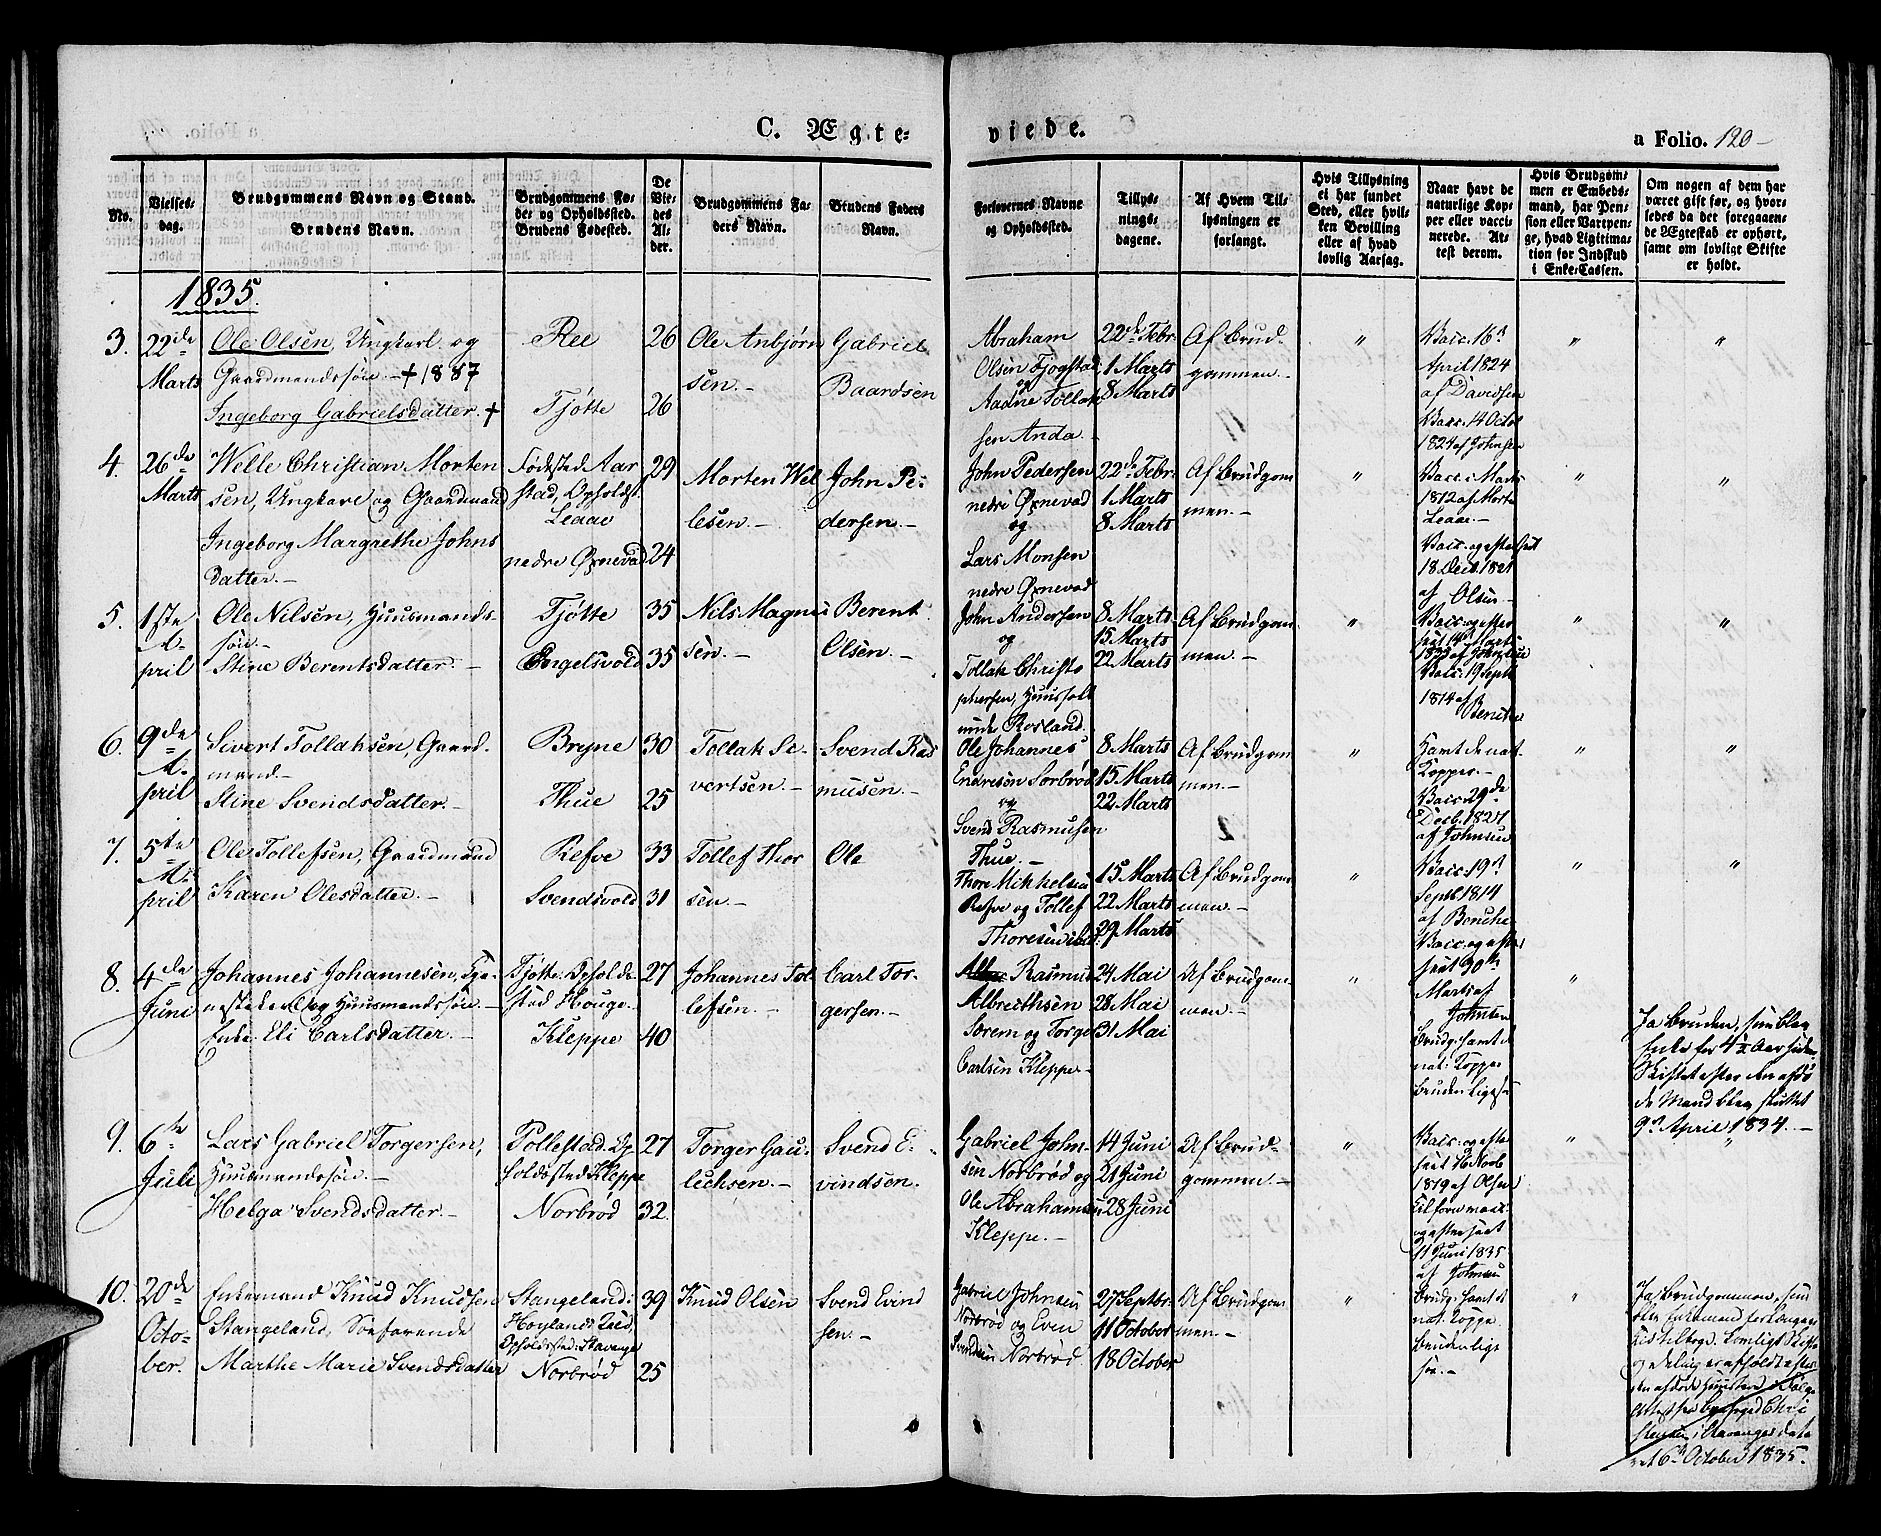 C. Ægte=
viede.
a Folio. 120
No.
Vielses-
dag.
Brudgommens Navn og Stand.
Brudens Navn.
Brudgommens Fø-
de- og Opholdssted.
Brudens Fødested.
De
Vie-
des
Al-
der.
Brudgommens Fa-
ders Navn.
Brudens Faders
Navn.
Forlovernes Navne
og Opholdssted.
Tillys-
nings-
dagene.
Af Hvem Til-
lysningen er
forlangt.
Hvis Tillysning
ei har fundet
Sted, eller hvil-
ken Bevilling
eller af hvad
lovlig Aarsag.
Naar havt de
naturlige Kop-
per eller vacci-
nerede. At-
test derom.
Hvis Brudgom-
men er Embeds-
mand, har Pen-
sion eller Vartpen-
ge, hvad Ligitima-
tion for Indskud
i Enke-Cassen.
Om nogen af dem har
været gift før, og hvor-
ledes da det foregaaen-
de Ægteskab er ophørt,
samt om lovligt Skifte
er holdt.
1835.
3.
22de
Marts
Ole Olsen, Ungkarl og
Gaardmandssøn. - + 1887
Ingeborg Gabrielsdatter. +
Ree
Tjøtte
26
26
Ole Anbjørn
sen. -
Gabriel
Baardsen
Abraham
Olsen Fjogstad
og
Aadne Tollak
sen Anda. -
22de Febr.
1 Marts
8 Marts
Af Brud-
gommen. -
"
Vacc. 16
April 1824
af Davidsen
Vacc. 14 Octor
1824 af Johnsen
"
"
4.
26de
Marts
Welle Christian Morten
sen, Ungkarl og Gaardmand
Ingeborg Margrethe Johns
datter. -
Fødested Aar
stad, Opholdst.
Leaae
nedre Øxnevad
29
24
Morten Wel
lesen. -
John Pe-
dersen. -
John Pedersen
nedre Øxnevad
og
Lars Monsen
nedre Øxnevad
22de Febr.
1 Marts
8 Marts
Af Brudgom
men. -
"
Vacc. Marts
1812 af Morten
Leaae. -
Vacc. og efterseet
18 Decb. 1821
af Olsen -
"
"
5.
1ste
A-
pril
Ole Nilsen, Huusmands-
søn. -
Stine Berentsdatter. -
Tjøtte
Engelsvold
35
35
Nils Magnus
sen. -
Berent
Olsen. -
John Andersen
og
Tollak Christo
phersen, Huusfolk
unde Rosland.
8 Marts.
15 Marts
22 Marts
Af Brudgom-
men. -
"
Vacc. og efter
seet 14 Marts
Vacc. 19 Sept
1814 af
"
"
6.
9de
A-
pril
Sivert Tollaksen, Gaard-
mand. -
Stine Svendsdatter. -
Bryne
Thue
30
25
Tollak Si-
vertsen. -
Svend Ras
musen. -
Ole Johannes
Endresen Sørbrød
og
Svend Rasmusen
Thue. -
8 Marts
15 Marts
22 Marts
Af Brudgom
men. -
"
Havt de nat.
Kopper. -
Vacc. 29de
Decb. 1827
af Johnsen
"
"
7.
5te
A-
pril
Ole Tollefsen, Gaardmand
Karen Olesdatter. -
Refve
Svendsvold
33
31
Tollef Thor
sen. -
Ole
Thore Mikkelsen
Refve og Tollef
Thoresen ibid.
15 Marts
22 Marts
29 Marts
Af Brudgom
men. -
"
Vacc. 19
Septb. 1814
af Benche-
Vacc. og efter
seet 30te
Marts af
Johnsen
"
"
8.
4de
Juni
Johannes Johannesen, Tje-
nestekarl og Huusmandssøn. -
Enke Eli Carlsdatter. -
Tjøtte: Opholds-
sted Houge.
Kleppe
27
40
Johannes Tol
lefsen. -
Carl Tor-
gersen. -
Rasmus
Albrecthsen
Sørem og Torge
Carlsen Kleppe. -
24 Mai
28 Mai
31 Mai
Af Brudgom-
men. -
"
Brudg: havt d
nat: Kopper
Bruden ligesaa
"
Ja Bruden, som blev
Enke for 4½ Aar siden.
Skiftet efter den afdø
de Mand blev sluttet
9 April 1834. -
9.
6te
Juli
Lars Gabriel Torgersen,
Huusmandssøn. -
Helga Svendsdatter. -
Pollestad. Op-
holdssted Kleppe
Norbrød
27
32.
Torger Gau-
lichsen. -
Svend E-
vindsen.
Gabriel John-
sen Norbrød og
Ole Abrahamsen
Kleppe. -
14 Juni
21 Juni
28 Juni
Af Brud-
gommen. -
"
Vacc: og efter
seet 16 Novb
1819 af Olsen
og efterseet
11 Juni 1835
af Johnsen
"
"
10.
20de
Octo-
ber.
Enkemand Knud Knudsen
Stangeland, Søefarende
Marthe Marie Svendsdatter
Stangeland:
Høylands Præst.
Opholdssted: Stavanger
Norbrød
39
25
Knud Olsen
Svend Evind
sen. -
Gabriel Johnsen
Norbrød og Even
Svendsen Norbrød
27 Septbr.
11 October
18 October
Af Brudgom
men -
"
Brudg: havt d
nat. Koppe
Bruden lige
saa. -
"
Ja Brudgommen, som
blev Enkemand for
Lovligt Skifte
og Deling er afholdt efter
den afdøde
Attest fra
i Stavanger date
ret 6 October 1835.